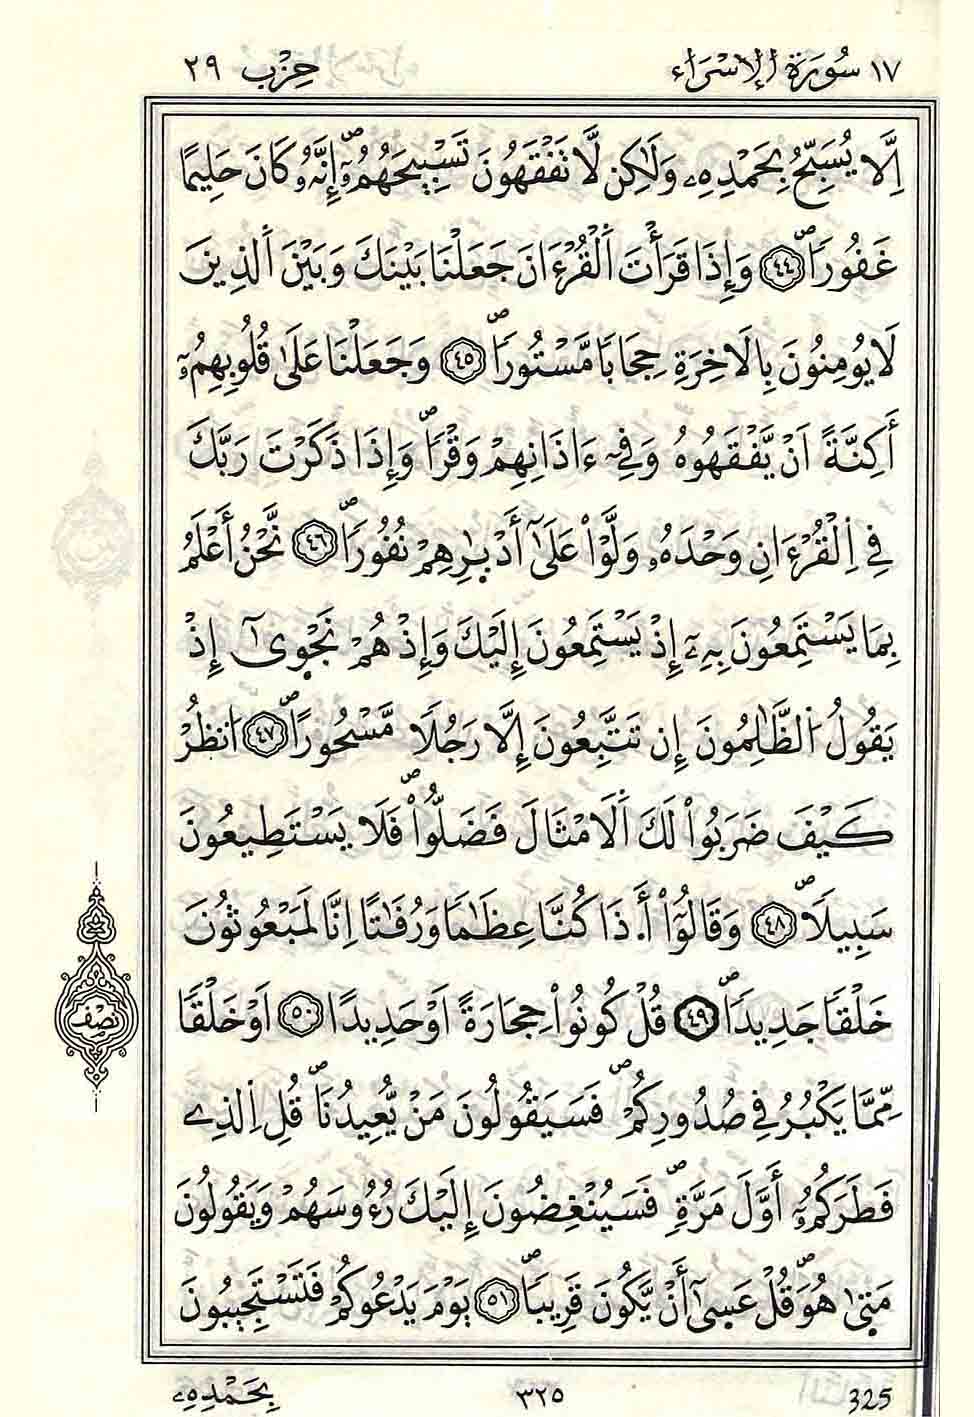 ١٧ سُورَةُ اُ۬لِاسْرَاء حِزْب ٢٩
إِلَّا يُسَبِّحُ بِحَمْدِهِۦ وَلَٰكِن لَّا تَفْقَهُونَ تَسْبِيحَهُمُۥٓۖ إِنَّهُۥ كَانَ حَلِيماً
غَفُوراٗۖ ٤٤ وَإِذَا قَرَأْتَ اَ۬لْقُرْءَانَ جَعَلْنَا بَيْنَكَ وَبَيْنَ اَ۬لذِينَ
لَا يُومِنُونَ بِالَاخِرَةِ حِجَاباٗ مَّسْتُوراٗۖ ٤٥ وَجَعَلْنَا عَلَىٰ قُلُوبِهِمُۥٓ
أَكِنَّةً اَنْ يَّفْقَهُوهُ وَفِےٓ ءَاذَانِهِمْ وَقْراٗۖ وَإِذَا ذَكَرْتَ رَبَّكَ
فِي اِ۬لْقُرْءَانِ وَحْدَهُۥ وَلَّوْاْ عَلَىٰٓ أَدْبٰ۪رِهِمْ نُفُوراٗۖ ٤٦ نَّحْنُ أَعْلَمُ
بِمَا يَسْتَمِعُونَ بِهِۦٓ إِذْ يَسْتَمِعُونَ إِلَيْكَ وَإِذْ هُمْ نَجْو۪ىٰٓ إِذْ
يَقُولُ اُ۬لظَّٰلِمُونَ إِن تَتَّبِعُونَ إِلَّا رَجُلاٗ مَّسْحُوراًۖ ٤٧ اَ۟نظُرْ
كَيْفَ ضَرَبُواْ لَكَ اَ۬لَامْثَالَ فَضَلُّواْۖ فَلَا يَسْتَطِيعُونَ
سَبِيلاٗۖ ٤٨ وَقَالُوٓاْ أَ.ذَا كُنَّا عِظَٰماٗ وَرُفَٰتاً اِنَّا لَمَبْعُوثُونَ
خَلْقاٗ جَدِيداٗۖ ٤٩ قُلْ كُونُواْ حِجَارَةً اَوْ حَدِيداً ٥٠ اَوْ خَلْقاٗ
مِّمَّا يَكْبُرُ فِي صُدُورِكُمْۖ فَسَيَقُولُونَ مَنْ يُّعِيدُنَاۖ قُلِ اِ۬لذِے
فَطَرَكُمُۥٓ أَوَّلَ مَرَّةٖۖ فَسَيُنْغِضُونَ إِلَيْكَ رُءُوسَهُمْ وَيَقُولُونَ
مَت۪ىٰ هُوَۖ قُلْ عَس۪ىٰٓ أَنْ يَّكُونَ قَرِيباٗۖ ٥١ يَوْمَ يَدْعُوكُمْ فَتَسْتَجِيبُونَ
نِصْف
بِحَمْدِهِۦ ٣٢٥ 325